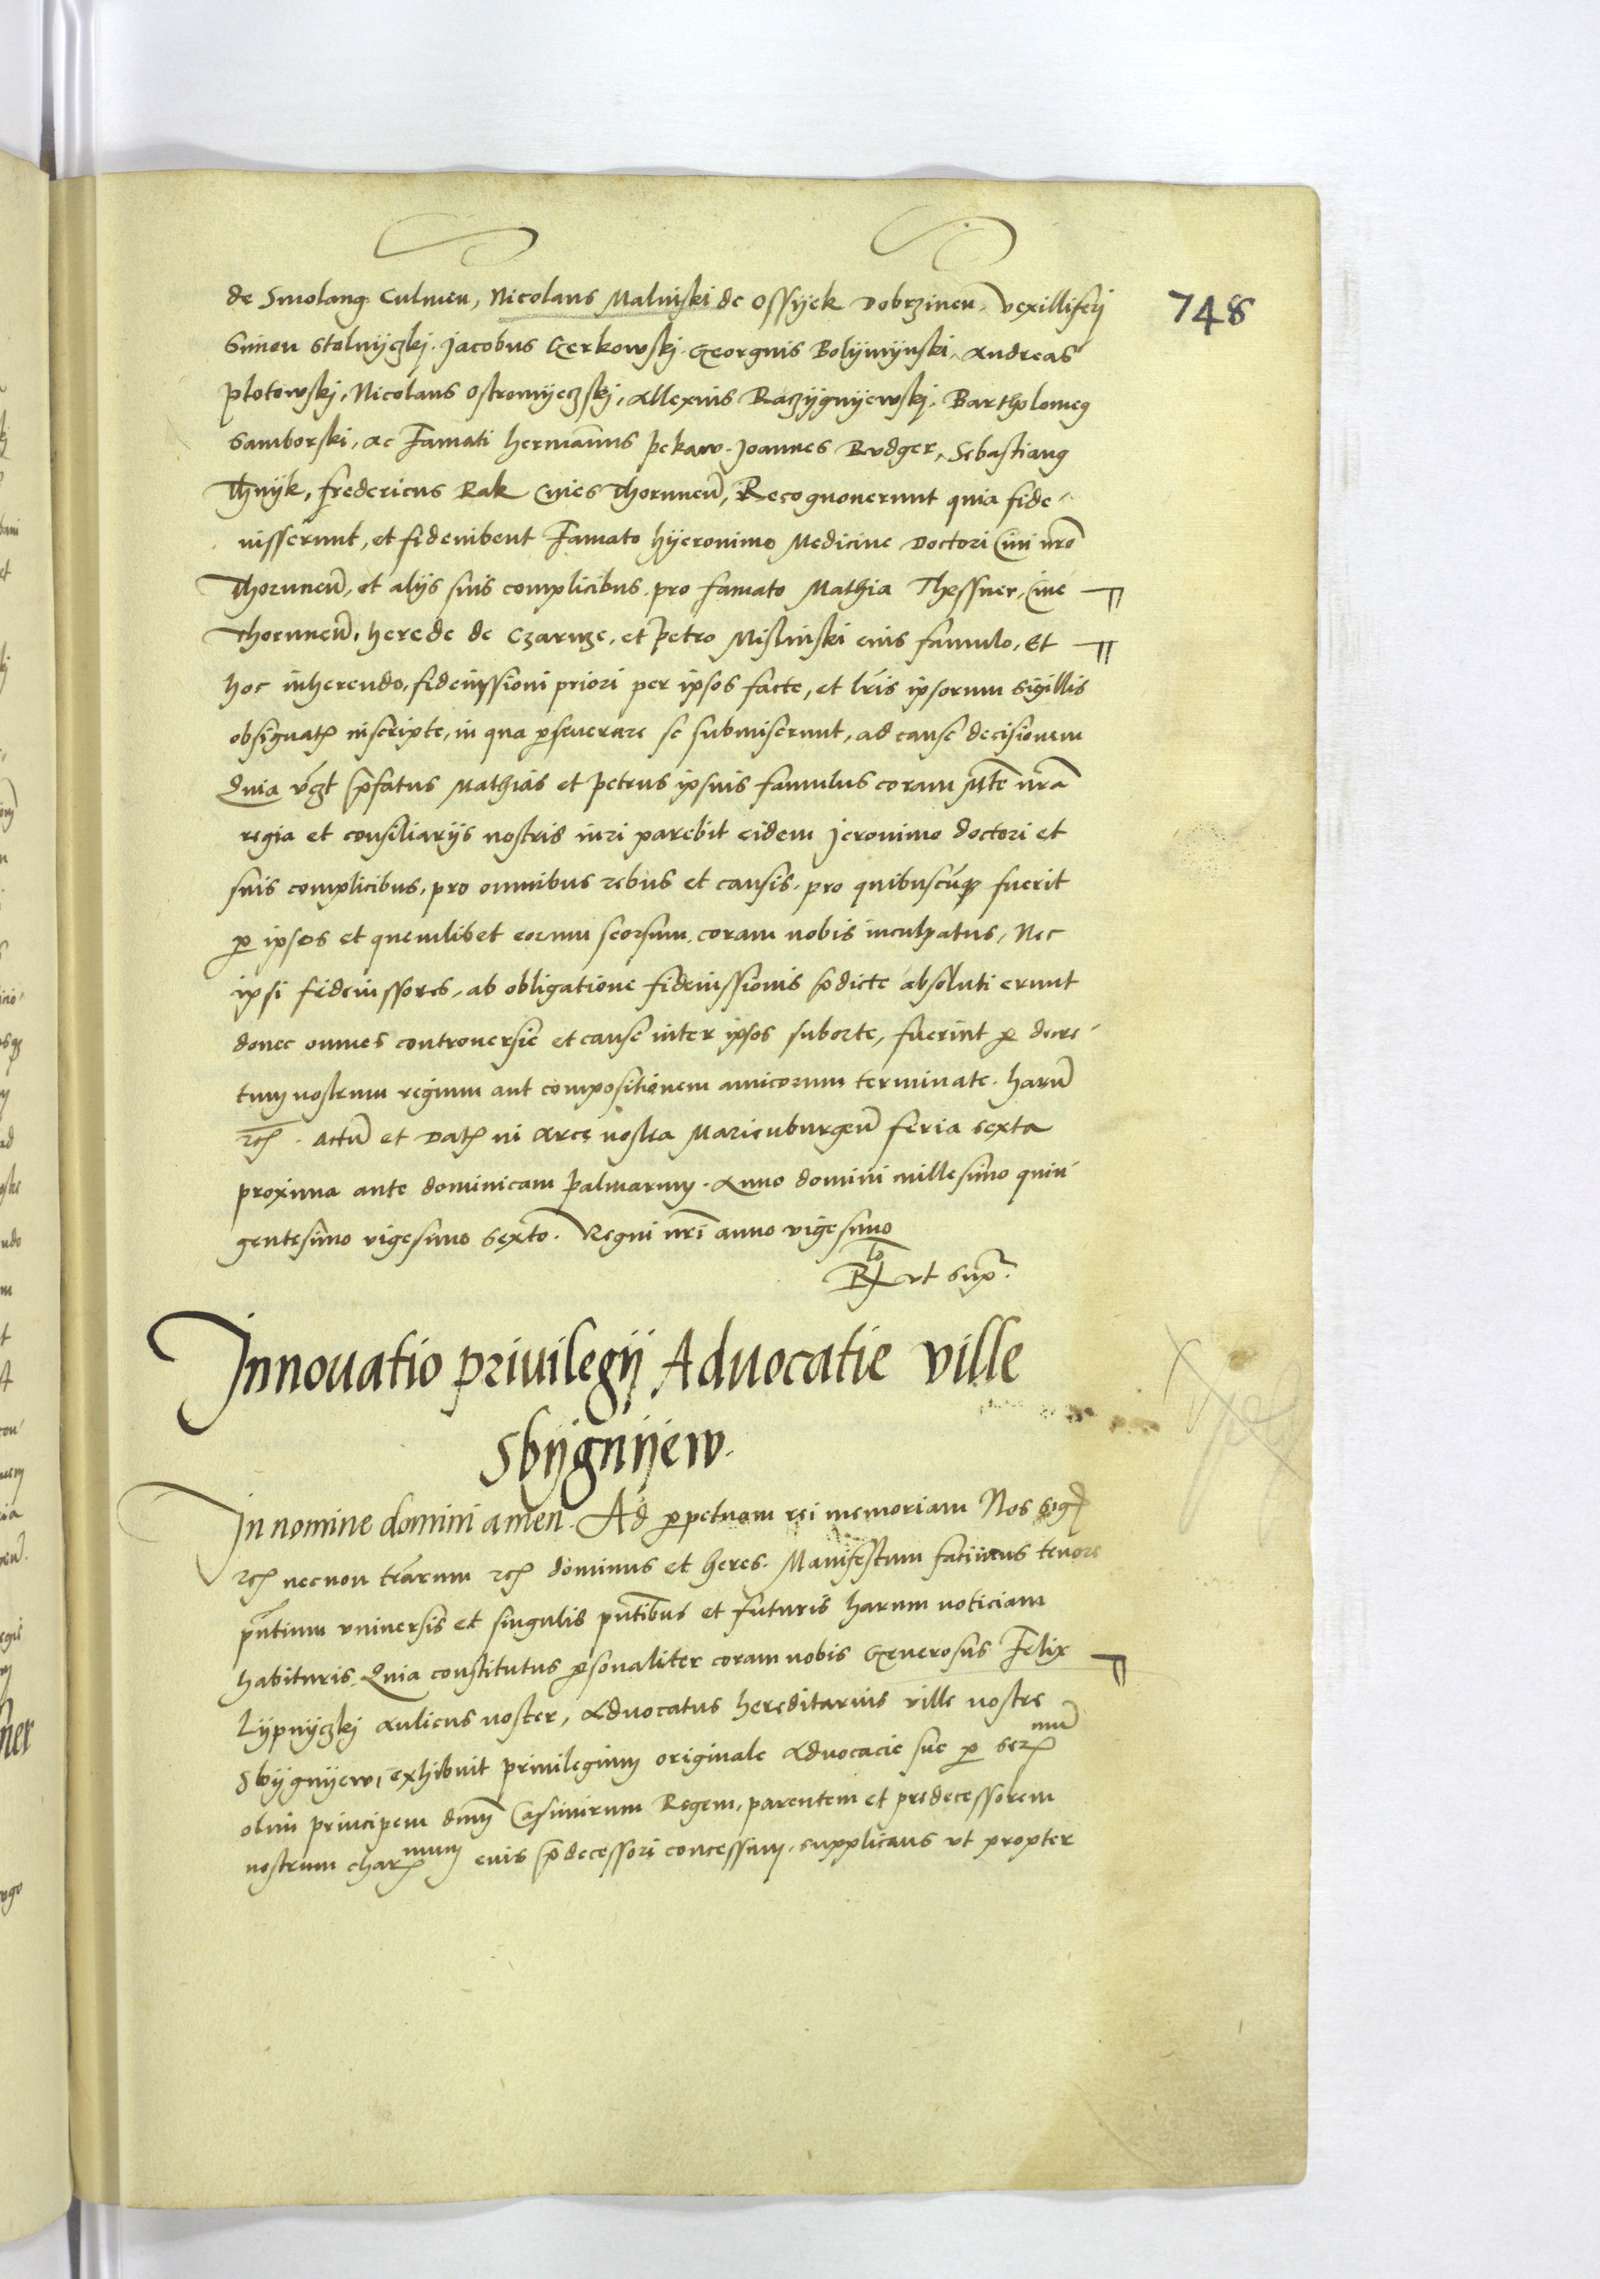 de Smolang Culmeñ, Nicolaus Malinski de Ossyek Dobrzineñ, vexilliferi
748
Simon Stolnyczkj. Jacobus Gerkowskj. Georgius Bolymynski, Andreas
Plotowskj, Nicolaus Ostromyeczskj, Allexius Raczygnyewskj. Bartholomeꝰ
Samborski, ac Famati Hermañus Pekaw. Joannes Rvdger, Sebastianꝰ
Thnyk, fredericus Rak Ciues Thoruneñ, Recognouerunt quia fide-
iusserunt, et fideiubent Famato Hyeronimo Medicine Doctori Ciui nr̃o
Thoruneñ, et alijs suis complicibus, pro famato Mathia Thessner, Ciue
Thoruneñ, herede de Czarnze, et Petro Mislinski eius famulo, Et
hoc inherendo, fideiussioni priori per ipsos facte, et lr̃is ipsorum sigillis
obsignatꝭ inscripte, in qua ꝑseuerare se submiserunt, ad cause decisionem
Quia vcꝫt p̃fatus Mathias et Petrus ipsius famulus coram Mte nr̃a
regia et consiliarijs nostris iuri parebit eidem Jeronimo doctori et
suis complicibus, pro omnibus rebus et causis, pro quibuscũqꝫ fuerit
ꝑ ipsos et quemlibet eorum seorsum, coram nobis inculpatus, Nec
ipsi fideiussores, ab obligatione fideiussionis p̃dicte absoluti erunt
donec omnes controuersie et cause inter ipsos suborte, fuerint ꝑ decre-
tum nostrum regium aut compositionem amicorum terminate. harũ
rcꝭ. Actũ et Datꝭ in Arce nostra Marienburgeñ feria sexta
proxima ante dominicam Palmarum. Anno domini millesimo quin-
gentesimo vigesimo sexto. Regni nr̃i anno vigesimo
Rlo vt supꝰ.
Innouatio priuilegij Aduocatie ville
Sbygnyew.
In nomine domini amen. Ad ꝑpetuam rei memoriam Nos Sigꝭ
rcꝭ necnon terr̃arum rcꝭ dominus et heres. Manifestum facimus tenore
pñtium vniuersis et singulis pñtibus et futuris harum noticiam
habituris. Quia constitutus ꝑsonaliter coram nobis Generosus Felix
Lypnyczkj Aulicus noster, Aduocatus hereditarius ville nostre
Sbygnyew, exhibuit priuilegium originale Aduocacie sue ꝑ serꝭmũ
olim principem dnm̃ Casimirum Regem, parentem et predecessorem
nostrum charꝭmum eius p̃decessori concessum, supplicans vt propter